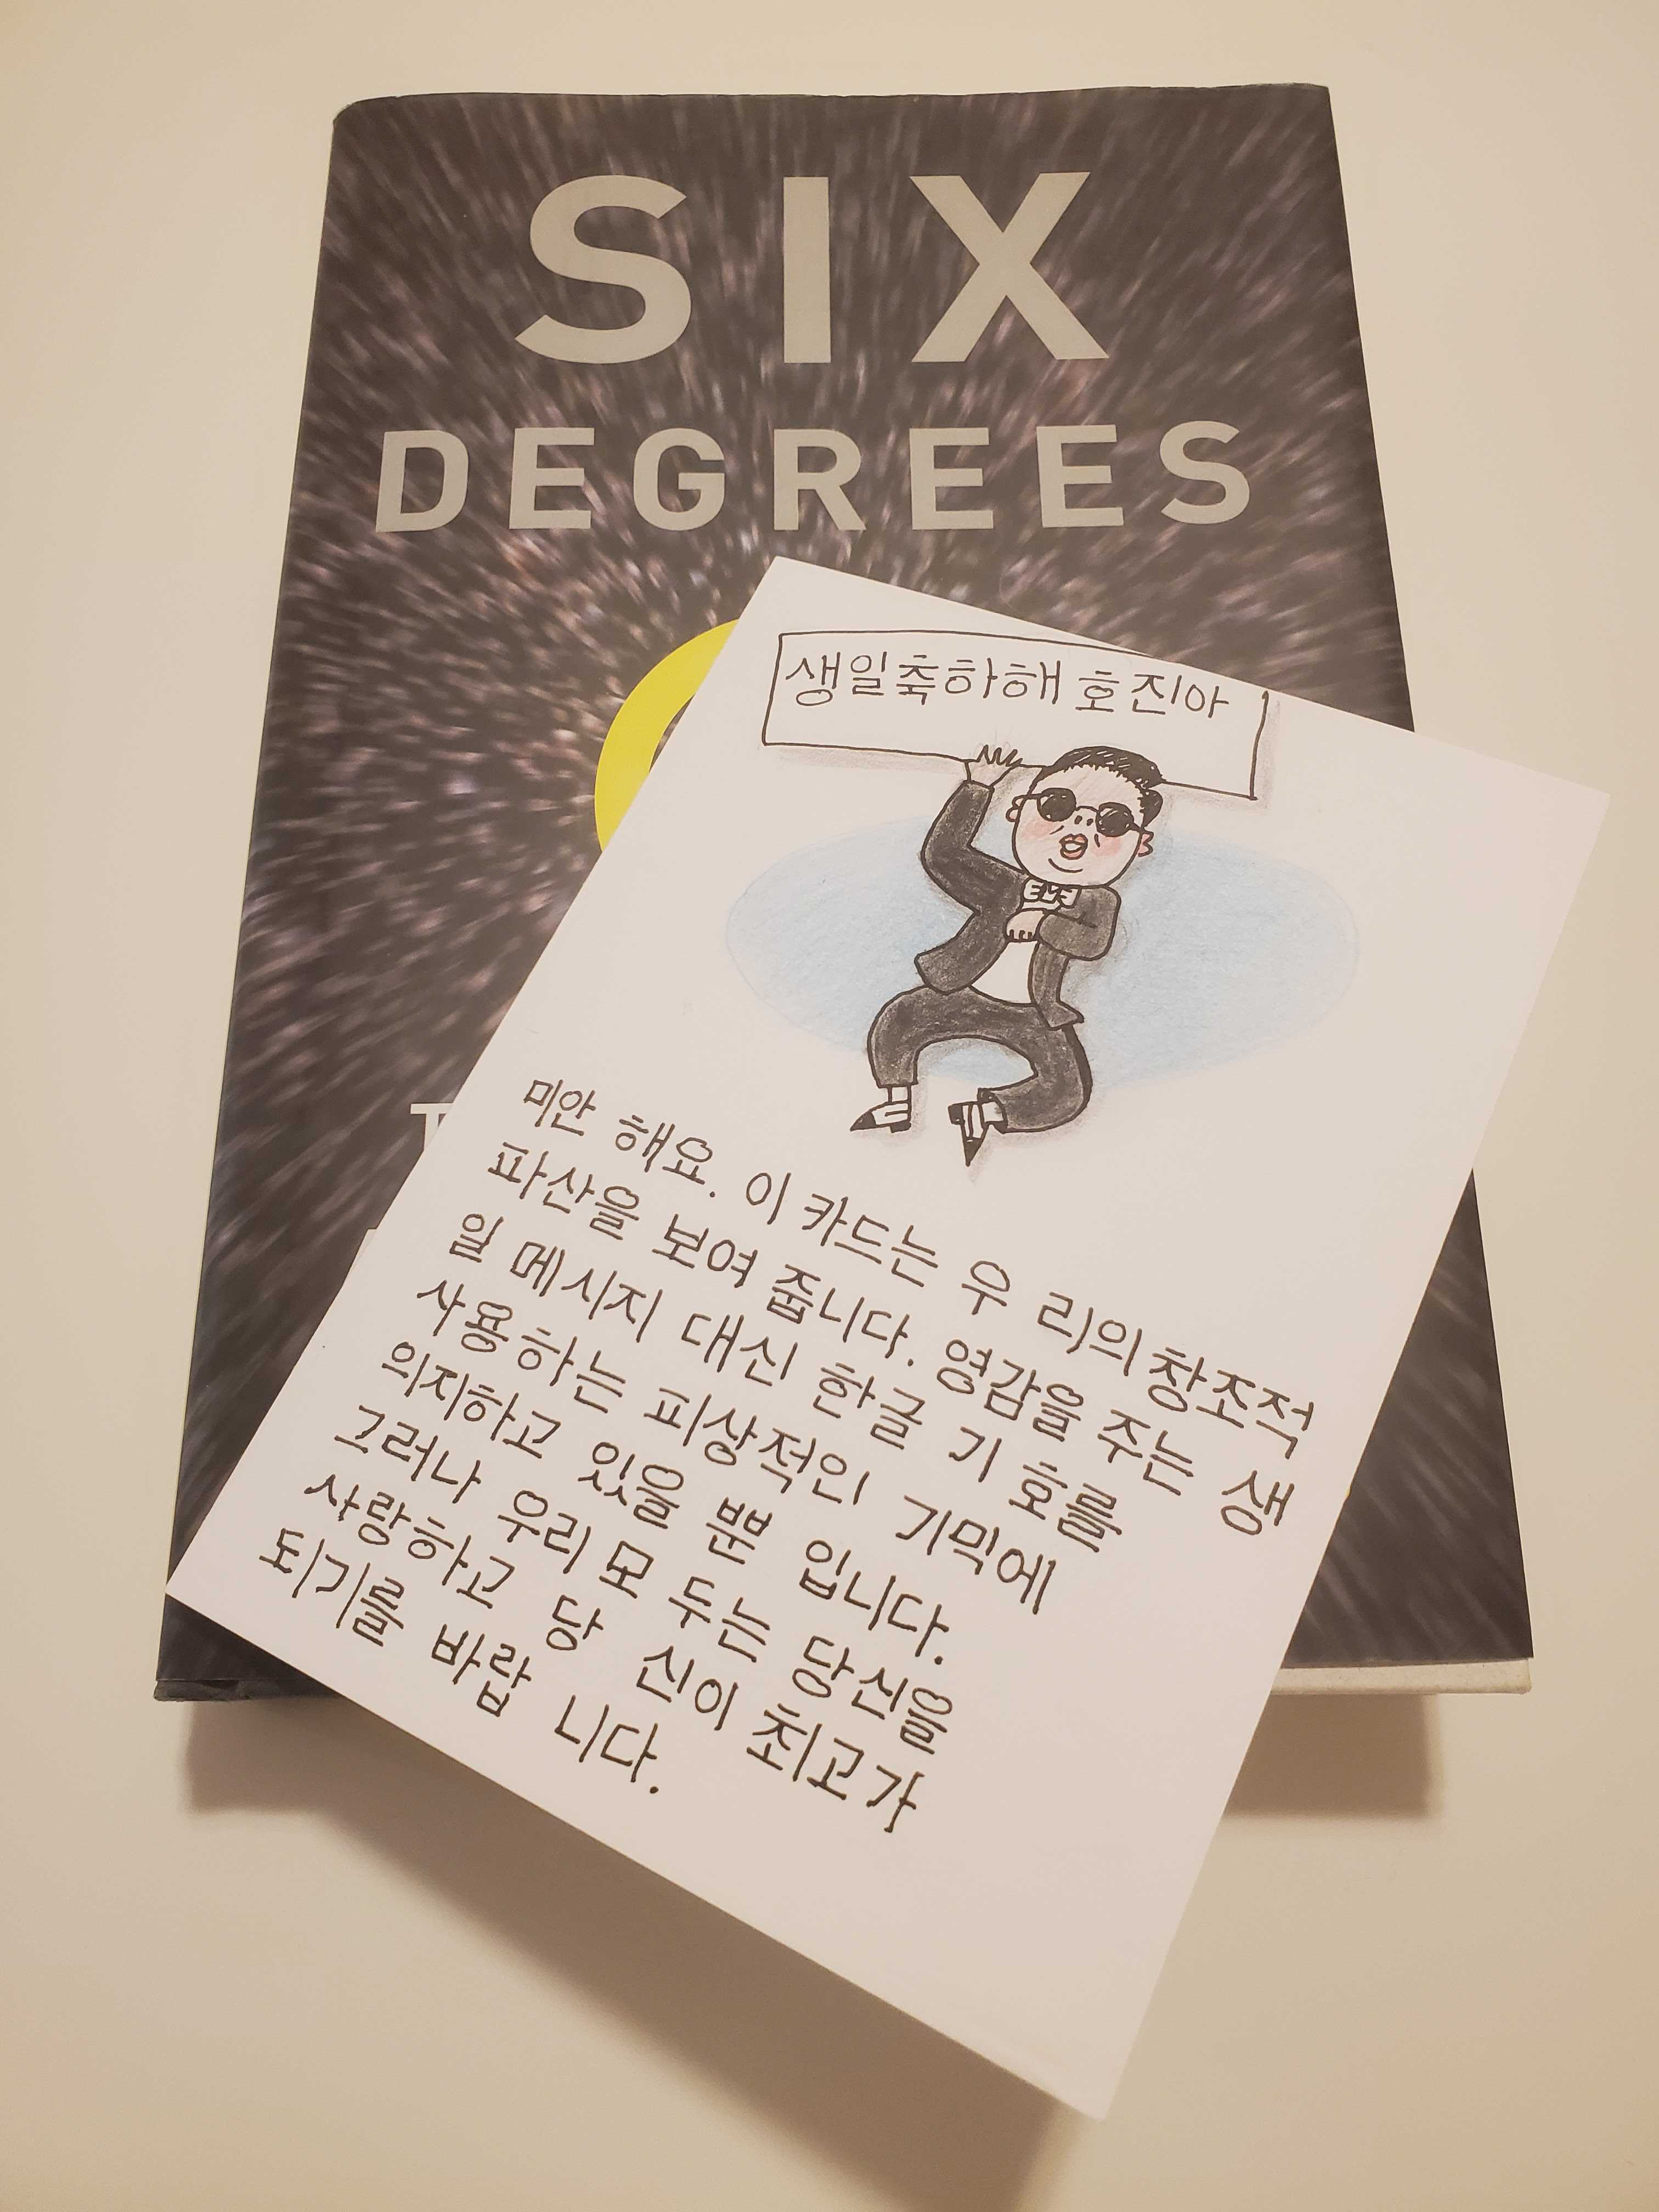 SIX
DEGREES
생일축하해 호진아
미안 해요. 이 카드는 우 리의 창조적
파산을 보여 줍니다. 영감을 주는 생
일 메시지 대신 한글 기 호를
사용하는 피상적인 기믹에
의지하고 있을 뿐 입니다.
그러나 우리 모 두는 당신을
사랑하고 당 신이 최고가
되기를 바랍 니다.